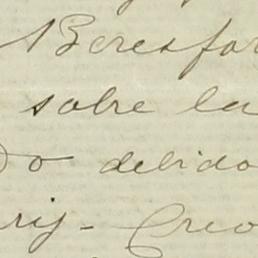 Beresfor
sobre la
do debido
rij- Creo